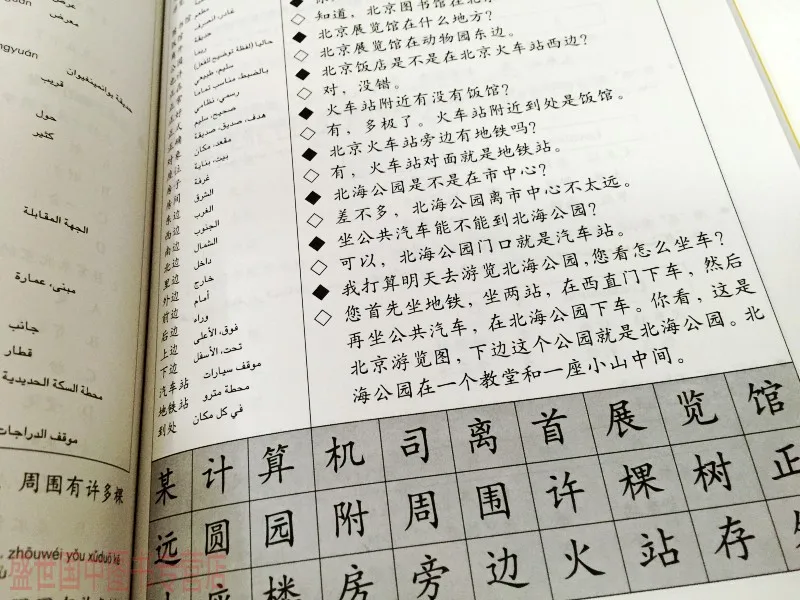 知道，北京图书馆在北京
北京展览馆在什么地方？
北京展览馆在动物园东边。
北京饭店是不是在北京火车站西边？
对，没错。
火车站附近有没有饭馆？
有，多极了。火车站附近到处是饭馆。
北京火车站旁边有地铁吗？
有，火车站对面就是地铁站。
北海公园是不是在市中心？
差不多，北海公园离市中心不太远。
坐公共汽车能不能到北海公园？
可以，北海公园门口就是汽车站。
我打算明天去游览北海公园，您看怎么坐车？
您首先坐地铁，坐两站，在西直门下车，然后
再坐公共汽车，在北海公园下车。你看，这是
北京游览图，下边这个公园就是北海公园。北
海公园在一个教堂和一座小山中间。
حديقة يوانمينغيوان
قريب
حول
كثير
الجهة المقابلة
مبنى، عمارة
جانب
قطار
محطة السكة الحديدية
موقف الدراجات
周围有许多棵
zhōuwéi yǒu xǔduō kē
مطعم
حديقة
ربما
سليم، طبيعي
بالضبط، مناسب تماما
رسمي، نظامي
صحيح، سليم
هدف، صديق، صديقة
مقعد، مكان
بيت، بناية
غرفة
东边 الشرق
西边 الغرب
南边 الجنوب
北边 الشمال
里边 داخل
外边 خارج
前边 أمام
后边 وراء
上边 فوق، الأعلى
下边 تحت، الأسفل
汽车站 موقف سيارات
地铁站 محطة مترو
到处 في كل مكان
某 计 算 机 司 离 首 展 览 馆
远 圆 园 附 周 围 许 棵 树 正
座 楼 房 旁 边 火 站 存